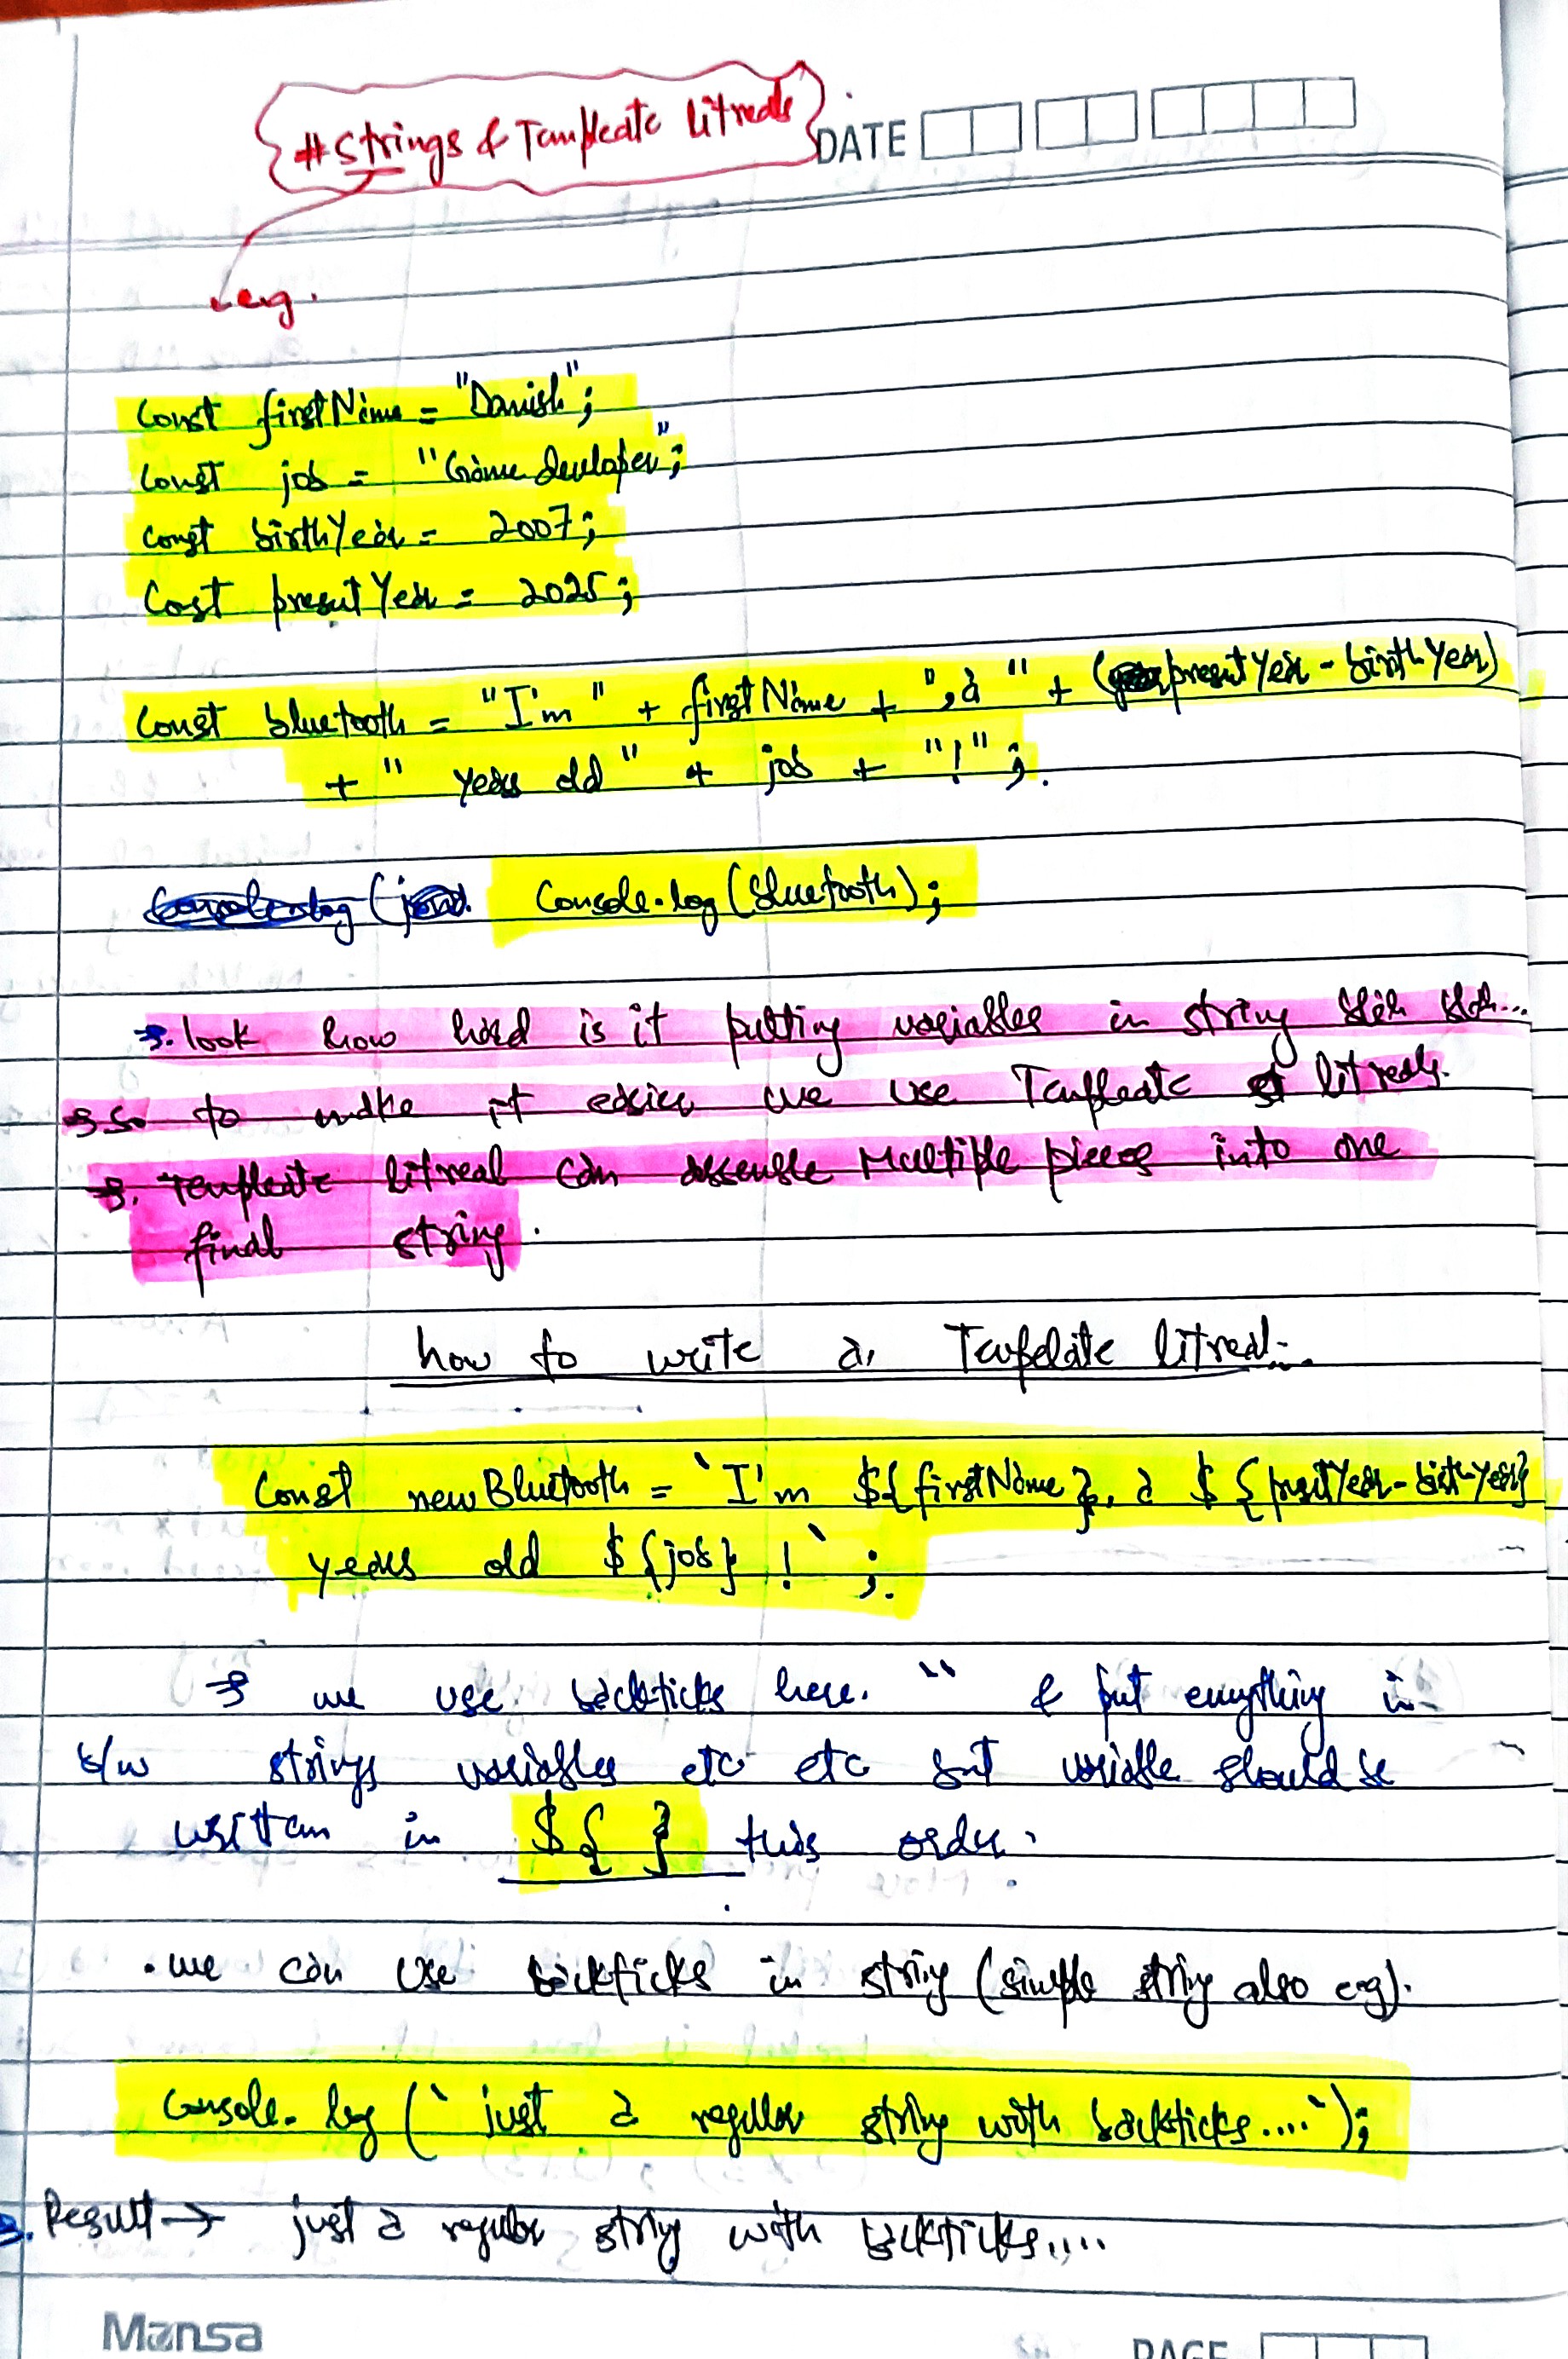 #Strings & Tampleate litreals
DATE
eg.
Const firstName = "Danish";
Const job = "Game developer";
Const birthYear = 2007;
Cost presentYear = 2025;
Const bluetooth = "I'm " + firstName + ", a " + (presentYear - birthYear)
+ " years old " + job + "!";
Console.log(bluetooth);
→. look how hard is it putting variables in string
→ So to make it easier we use Tampleate litreals.
→. Templeate litreal can assemble Multiple pieces into one
final string.
how to write a Tempelate litreal:-
Const newBluetooth = `I'm ${firstName}, a ${presentYear-birthYear}
years old ${job}!`;
→ we use backticks here. `` & put everything in
b/w strings variables etc etc but variable should be
written in ${ } this order.
. we can use backticks in string (simple string also eg).
Console.log(`just a regular string with backticks....`);
→. Result → just a regular string with backticks....
Mansa
PAGE